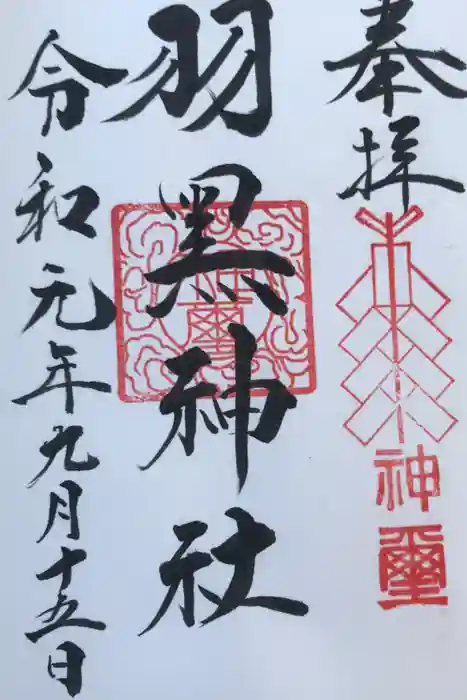 奉拝
神璽
羽黒神社
令和元年九月十五日